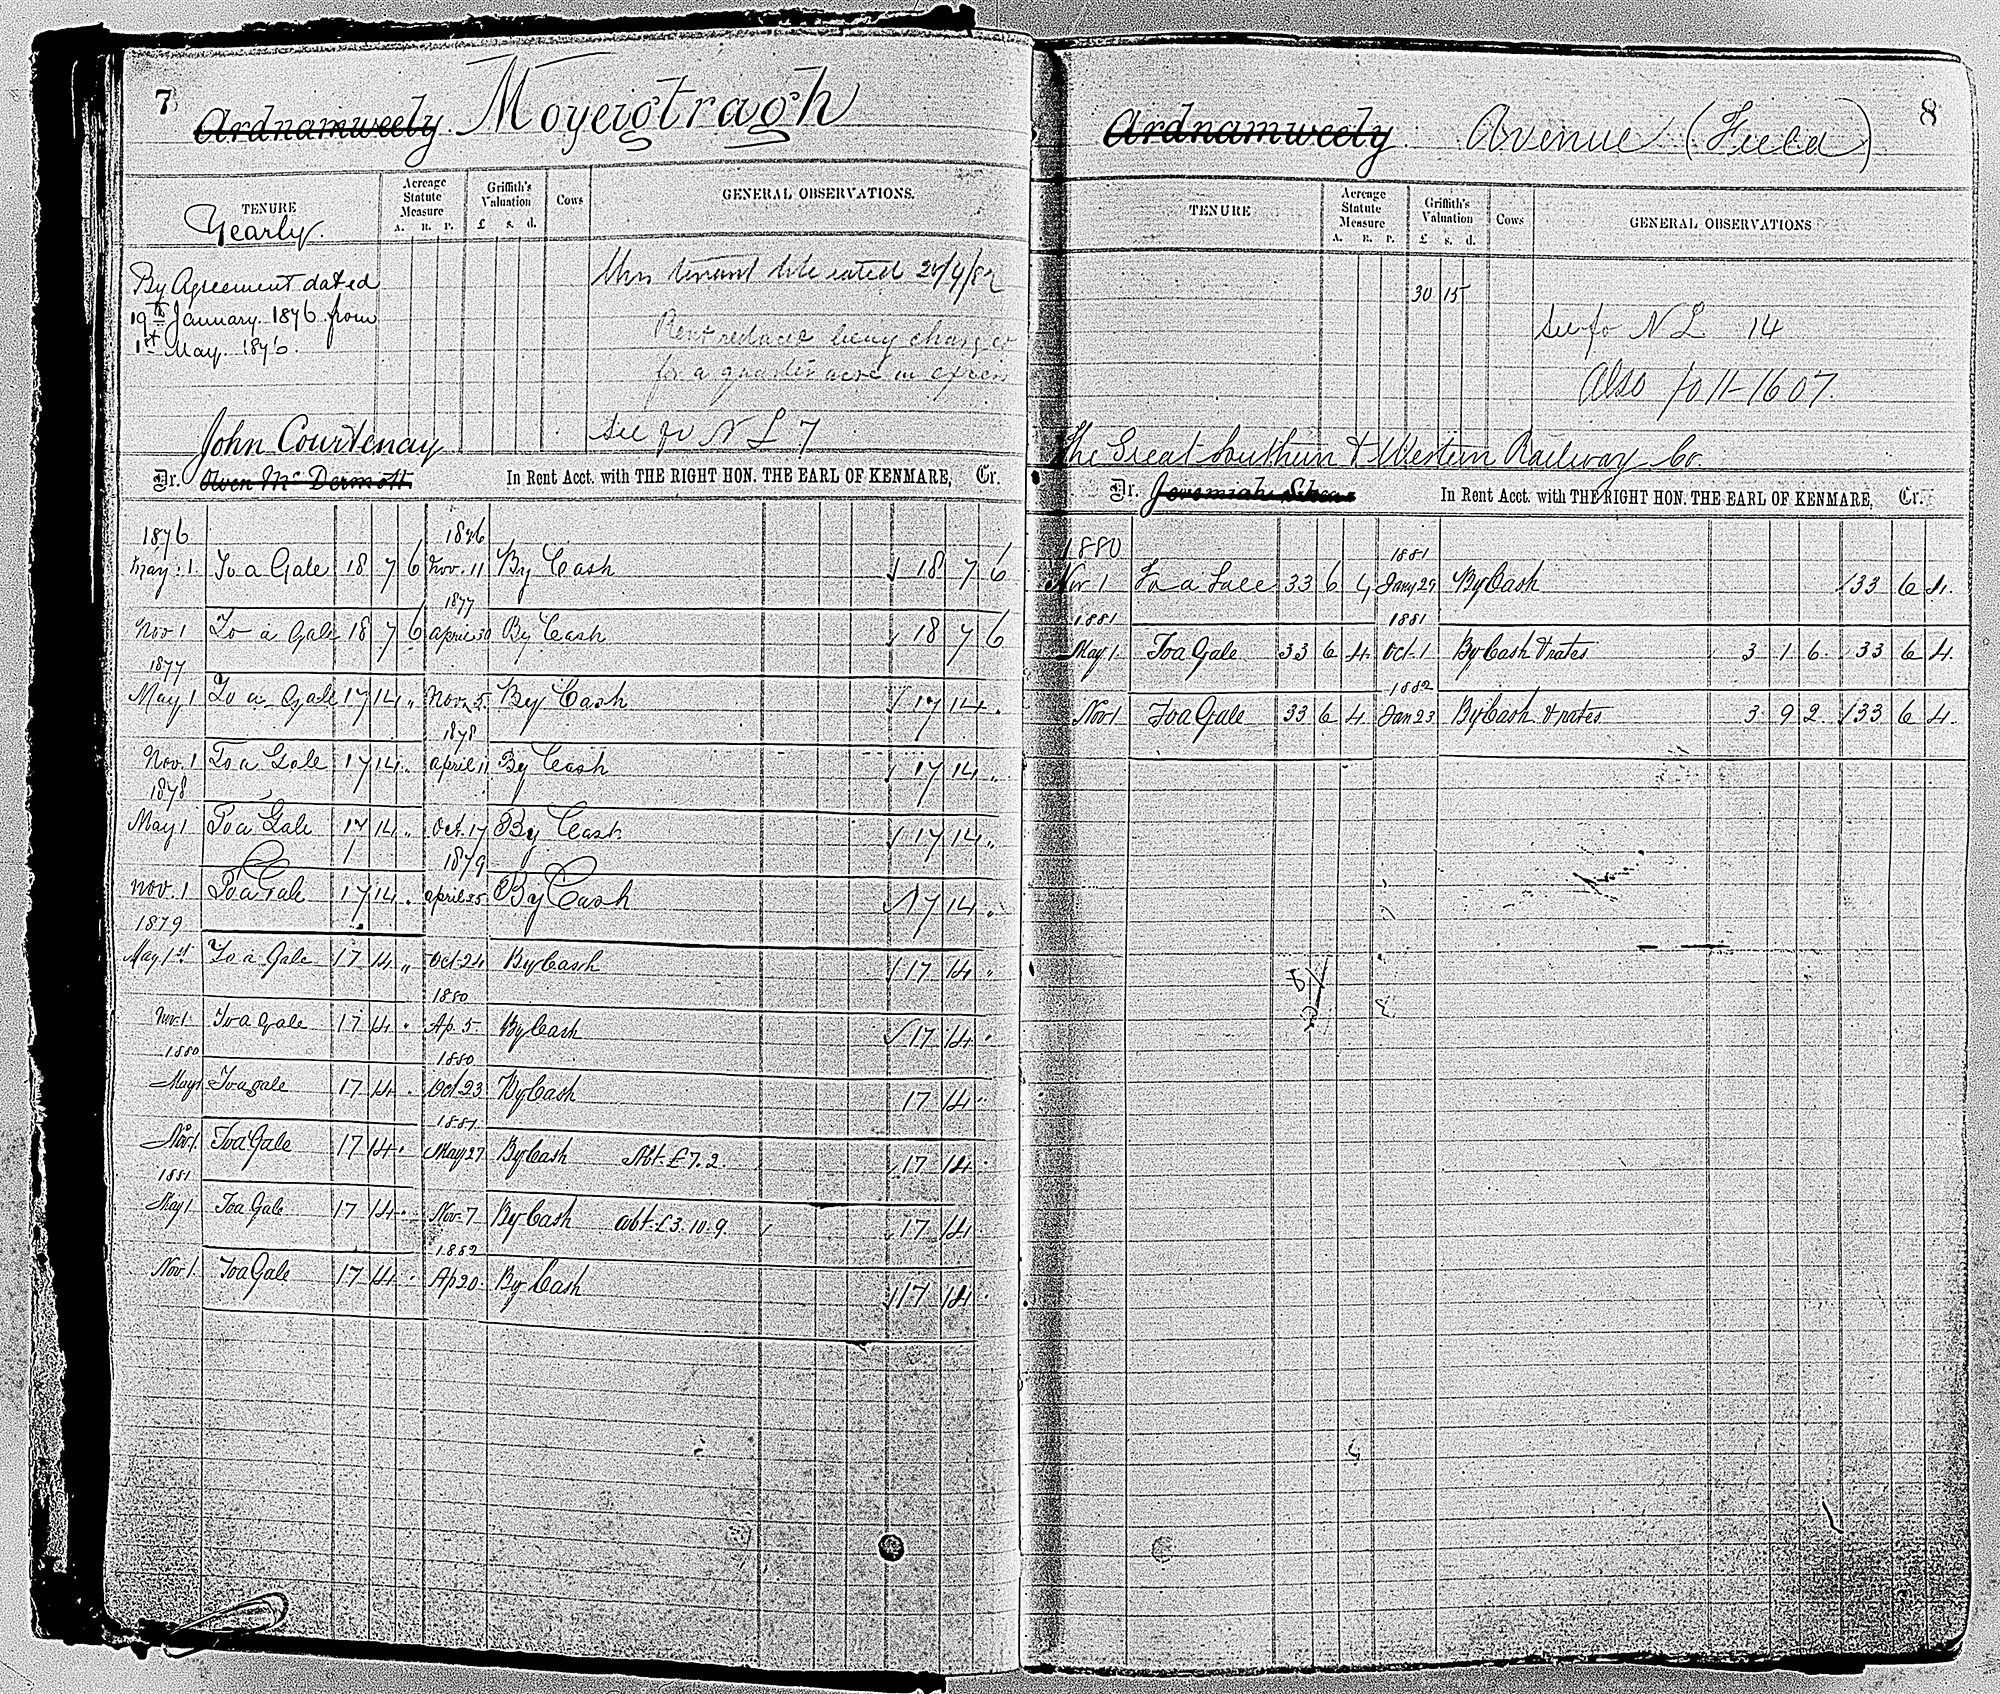 7
Ardnamweely. Moyeigtragh
TENURE
Acreage Statute Measure
A. R. P.
Griffith's Valuation
£ s. d.
Cows
GENERAL OBSERVATIONS.
Yearly.
By Agreement dated
19th January 1876 from
1st May. 1876.
tenant 20/4/82
Rent reduced being charged
for a quarter acre in excess
See fo N L 7
John Courtenay
Dr. Owen McDermott In Rent Acct. with THE RIGHT HON. THE EARL OF KENMARE, Cr.
1876 1876
May. 1 To a Gale 18 7 6 Nov. 11 By Cash 18 7 6
1877
Nov 1 To a Gale 18 7 6 April 30 By Cash 18 7 6
1877
May 1 To a Gale 17 14 " Nov. 5 By Cash 17 14 "
1878
Nov. 1 To a Gale 17 14 " April 11 By Cash 17 14 "
1878
May 1 To a Gale 17 14 " Oct. 17 By Cash 17 14 "
1879
Nov. 1 To a Gale 17 14 " April 25 By Cash 17 14 "
1879
May 1st To a Gale 17 14 " Oct 24 By Cash 17 14 "
1880
Nov. 1 To a Gale 17 14 " Ap. 5 By Cash 17 14 "
1880 1880
May 1 To a gale 17 14 " Oct 23 By Cash 17 14 "
1881
Nov. 1 To a Gale 17 14 " May 27 By Cash Abt. £7. 2. 17 14 "
1881
May 1 To a Gale 17 14 " Nov. 7 By Cash abt. £3. 10. 9. 17 14
1882
Nov. 1 To a Gale 17 14 " Ap 20 By Cash 17 14 "
8
Ardnamweely. Avenue (Field)
TENURE
Acreage Statute Measure
A. R. P.
Griffith's Valuation
£ s. d.
Cows
GENERAL OBSERVATIONS
30 15
See fo N L 14
Also fo 1607.
The Great Southern & Western Railway Co.
Dr. Jeremiah Shea In Rent Acct. with THE RIGHT HON. THE EARL OF KENMARE, Cr.
1880 1881
Nov 1 To a Gale 33 6 4 Jany 29 By Cash 33 6 4.
1881 1881
May 1. To a Gale 33 6 4. Oct. 1 By Cash & rates 3 1 6. 33 6 4.
1882
Nov 1 To a Gale 33 6 4. Jan 23 By Cash & rates 3 9 2. 33 6 4.